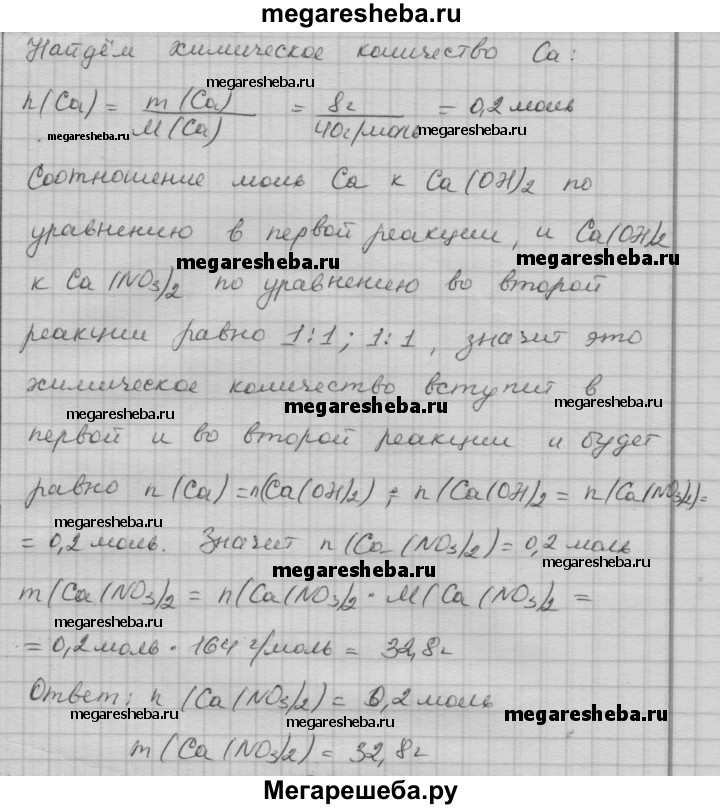 megaresheba.ru
Найдём химическое количество Ca:
megaresheba.ru
n(Ca) = m(Ca) / M(Ca) = 8г / 40г/моль = 0,2 моль
megaresheba.ru megaresheba.ru
Соотношение моль Ca к Ca(OH)2 по
уравнению в первой реакции, и Ca(OH)2
megaresheba.ru megaresheba.ru
к Ca(NO3)2 по уравнению во второй
реакции равно 1:1; 1:1, значит это
химическое количество вступит в
megaresheba.ru megaresheba.ru megaresheba.ru
первой и во второй реакции и будет
равно n(Ca) = n(Ca(OH)2); n(Ca(OH)2 = n(Ca(NO3)2) =
megaresheba.ru
= 0,2 моль. Значит n(Ca(NO3)2) = 0,2 моль
megaresheba.ru megaresheba.ru
m(Ca(NO3)2 = n(Ca(NO3)2 · M(Ca(NO3)2 =
= 0,2 моль · 164 г/моль = 32,8г
Ответ: n(Ca(NO3)2) = 0,2 моль
megaresheba.ru megaresheba.ru
m(Ca(NO3)2) = 32,8г
megaresheba.ru megaresheba.ru
Мегарешеба.ру